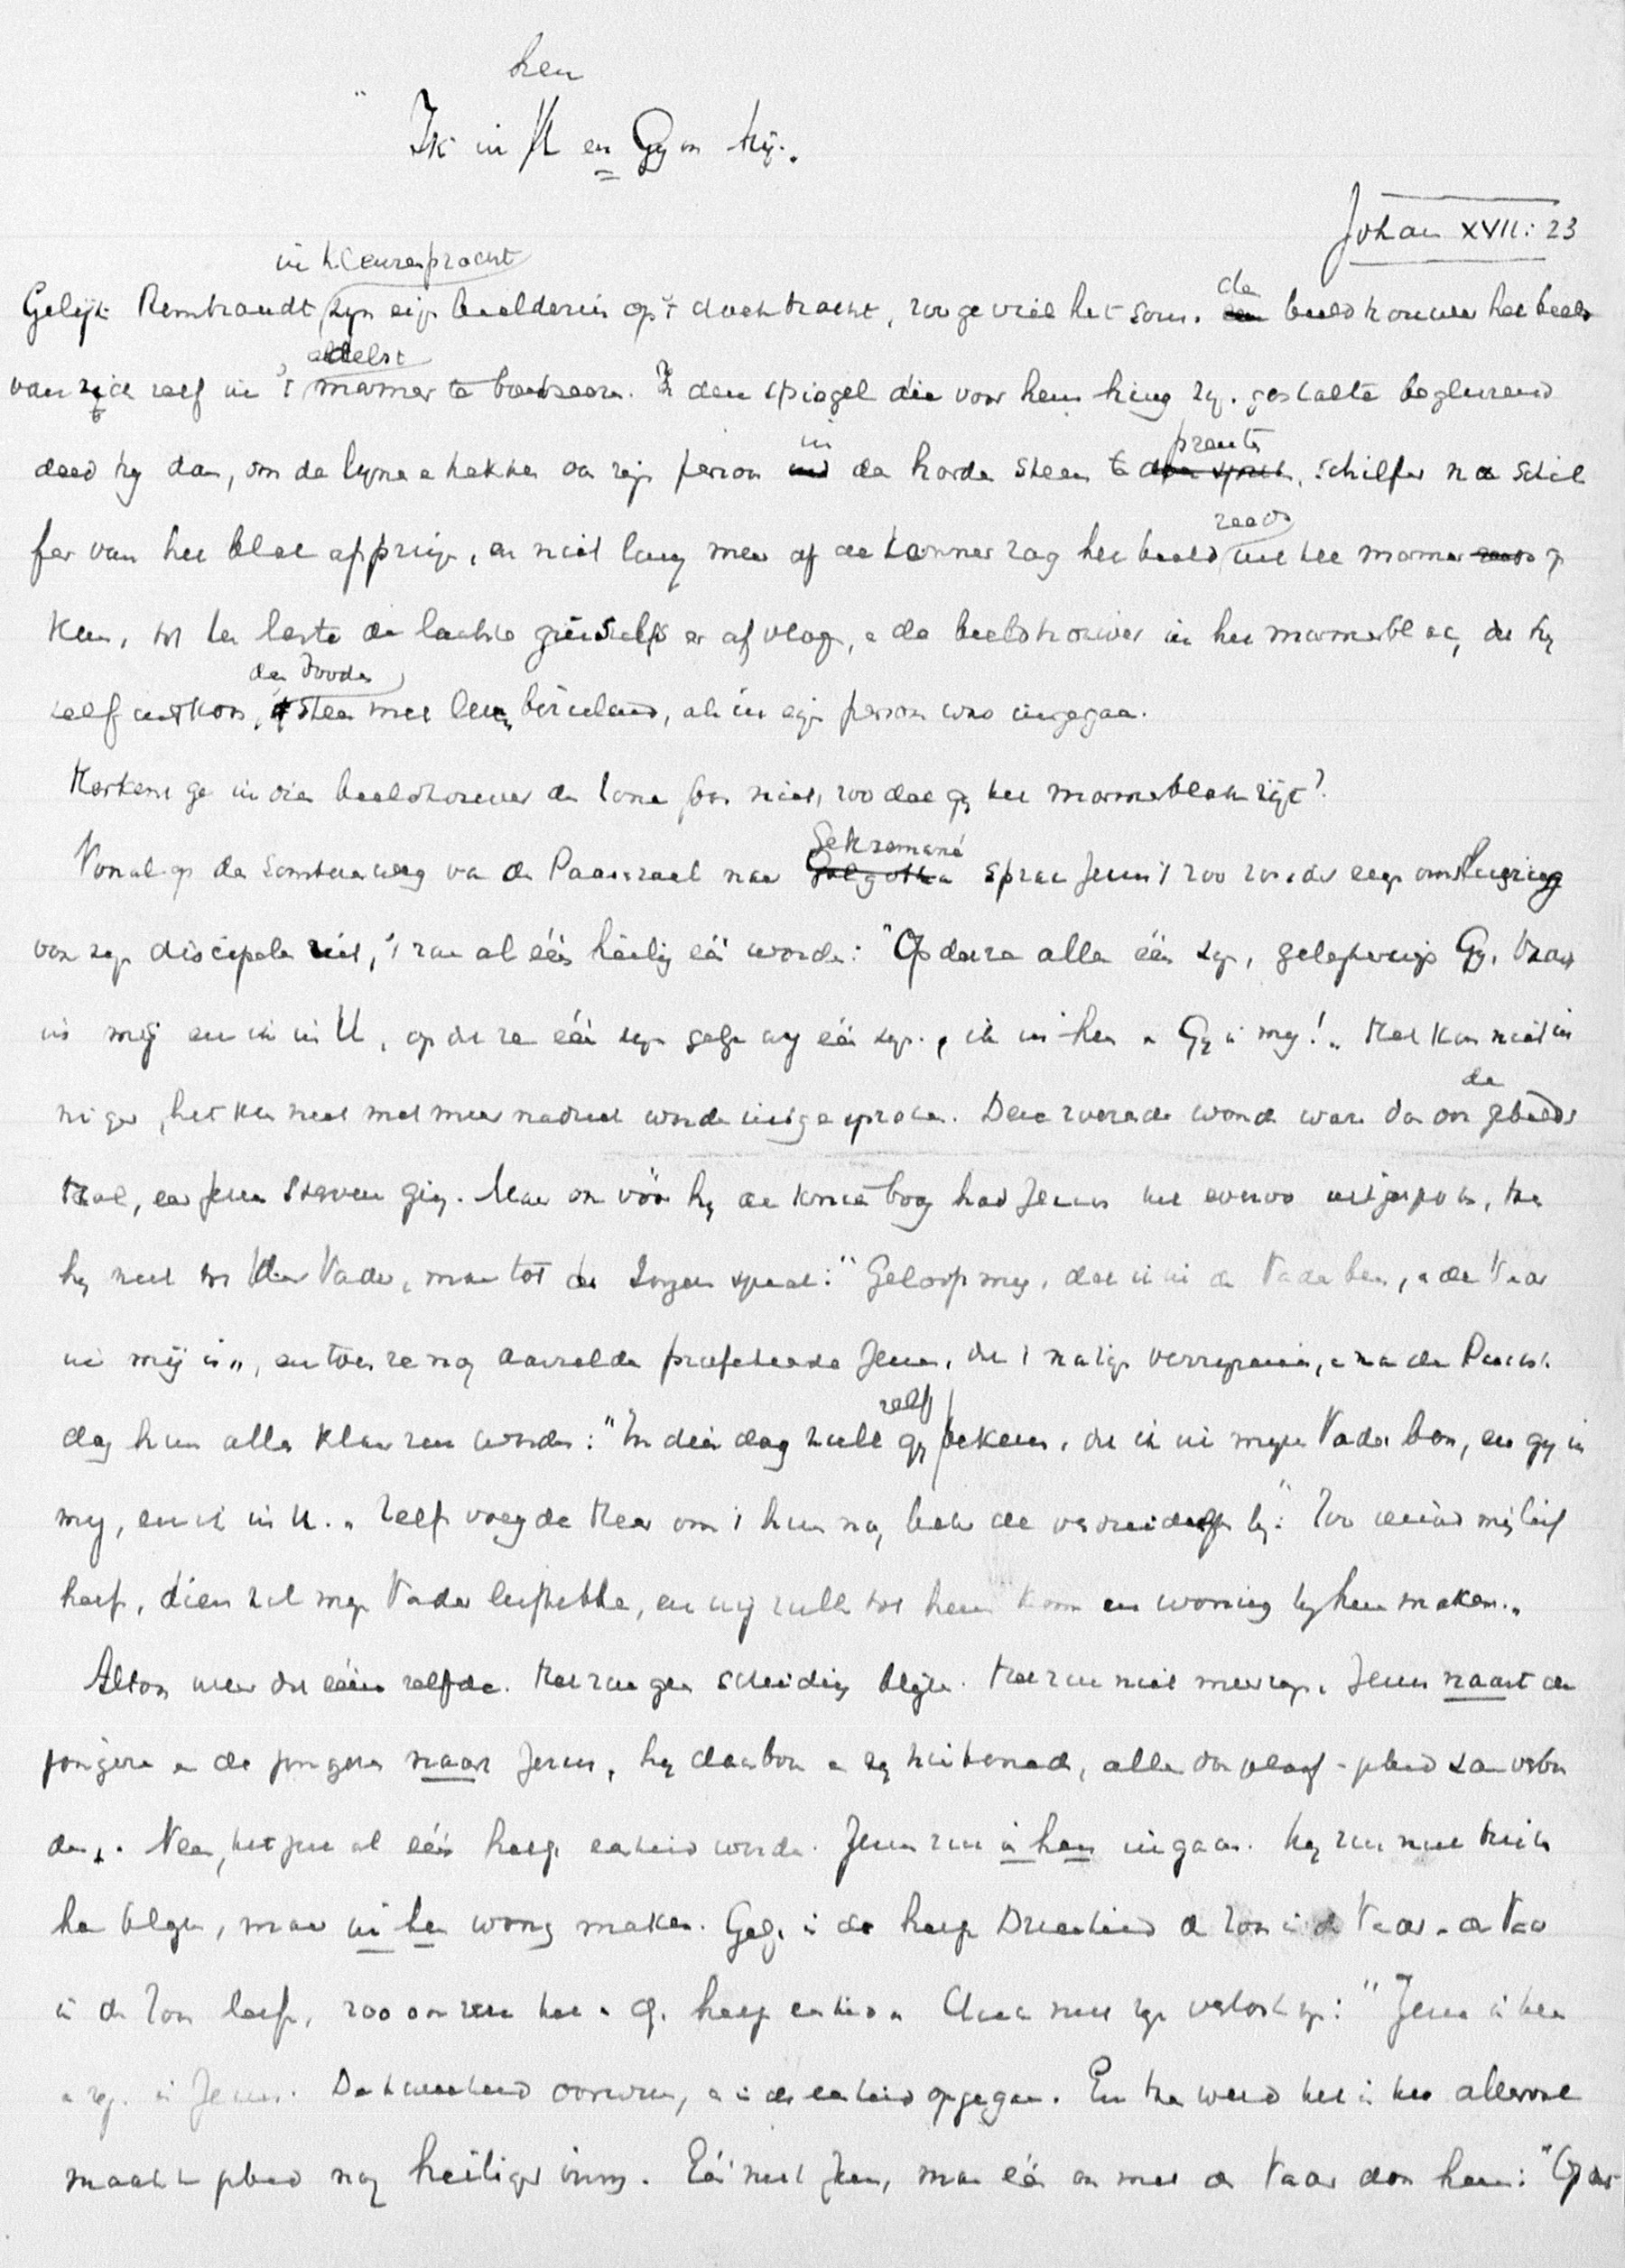 hen
"Ik in U en Gij in Mij."
Johan XVII: 23
in kleurenpracht
Gelijk Rembrandt zijn eigen beeldenis op 't doek bracht, zoo geviel het soms den de beeldhouwer het beeld
edelst
van zich zelf in 't marmer te boetseeren. In den spiegel die voor hem hing zijn gestalte beglurend
in prenten
deed hij dan, om de lijnen en trekken van zijn persoon in de harde steen te schilfer na schil
reeds
fer van het blok afspringen, en niet lang meer of de kenner zag het beeld uit het marmer reeds op
komen, tot ten leste de laatste er af vloog, en de beeldhouwer in het marmerblok, dat hij
den dooden
zelf uitkoos, steen met leven bezielend, als in eigen persoon was ingegaan.
Herkent ge in dien beeldhouwer den Zone Gods niet, zoo dat gij het marmerblok zijt?
Gethsemané
Vooral op de somberen weg van de Paaschzaal naar Golgotha sprak Jezus 't zoo zonder eenige omsluiering
voor zijn discipelen uit, 't zou al één heilig één worden: "Opdat ze allen één zijn, gelijkerwijs Gij, Vader
in mij en ik in U, opdat ze één zijn gelijk wij één zijn, ik in hen en Gij in mij!" Het kan niet in
de
niger, het kan niet met meer nadruk worden uitgesproken. Deze woorden waren van den gebeds
taal, eer Jezus sterven ging. Maar ook vóór hij de knieën boog had Jezus het evenzoo uitgesproken, toen
hij niet tot den Vader, maar tot de Jongeren sprak: "Gelooft mij, dat ik in den Vader ben, en de Vader
in mij is", en toen ze nog aarzelden profeteerde Jezus, dat 't na zijn verrijzenis, en na den Pinkster
zelf
dag hun alles klaar zou worden: "In dien dag zult gij bekennen, dat ik in mijn Vader ben, en gij in
mij, en ik in U." Zelf voegde Hij er om 't hun nog beter te verduidelijken bij: "Zoo iemand mij lief
heeft, dien zal mijn Vader liefhebben, en wij zullen tot hem komen en woning bij hem maken."
Altoos weer dat ééne zelfde. Het zou geen scheiding blijven. Het zou niet meer zijn, Jezus naast de
jongeren en de jongeren naast Jezus, hij daarboven en zij hier beneden, alleen door geloof en gebed saam verbon
den. Neen, het zou al één heilige eenheid worden. Jezus zou in hen ingaan. Hij zou niet buiten
hen blijven, maar in hen woning maken. Gelijk in de heilige Drieëenheid de Zoon in den Vader en de Vader
in den Zoon leeft, zoo ook zou het een heilige eenheid van Christus met zijn verlosten zijn: "Jezus in hen
en zij in Jezus. De tweeheid overwonnen, en in de eenheid opgegaan. En toen werd het in het allervol
maakste gebed nog heiliger innig. Eén met Jezus, maar één ook met den Vader door hem: "Opdat